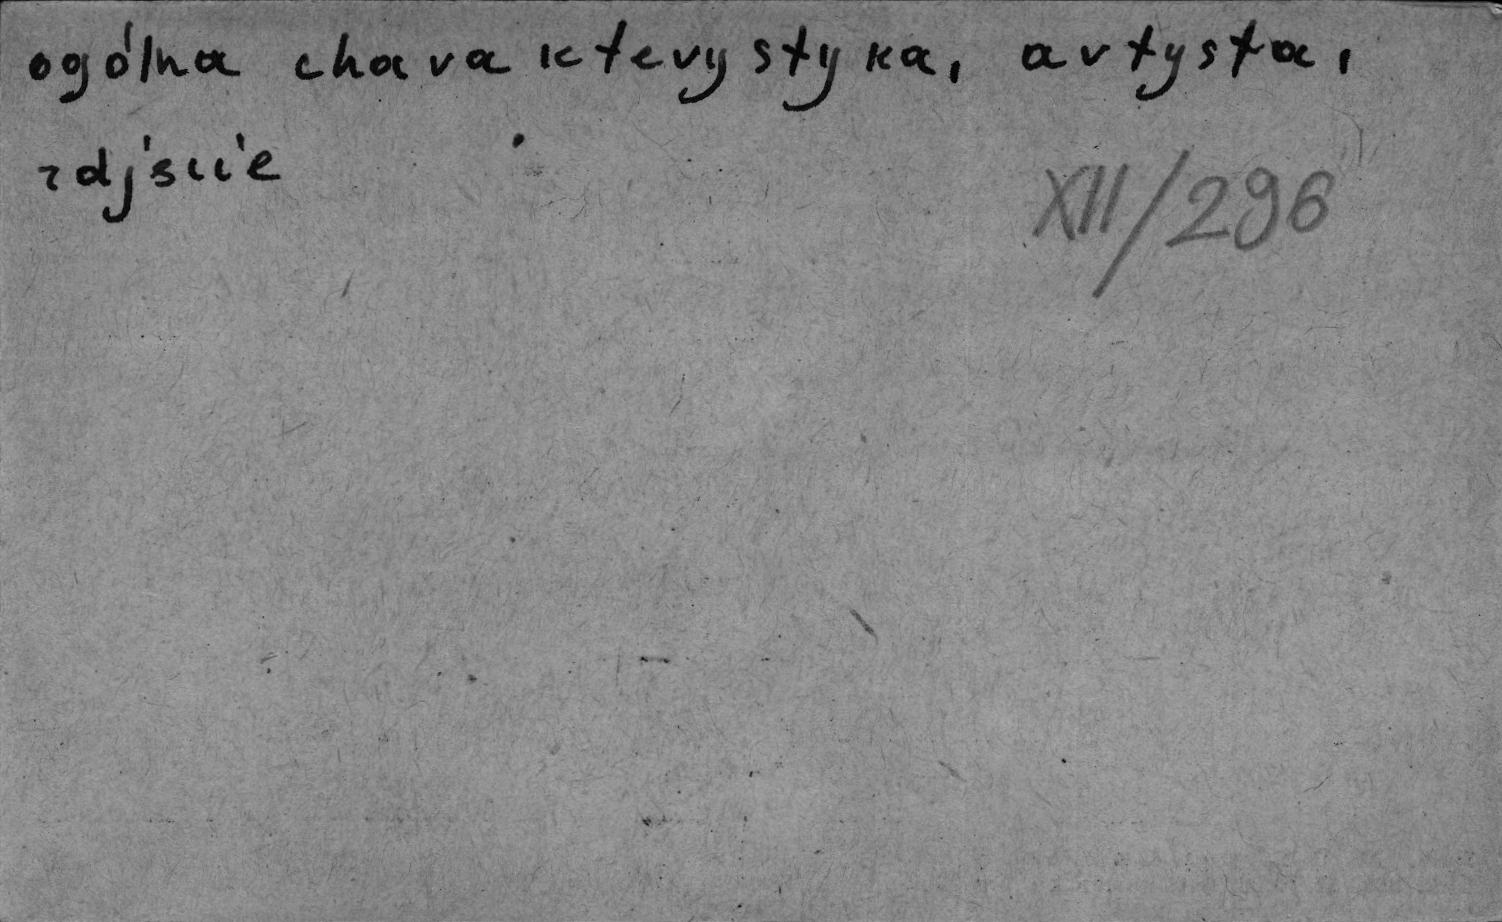 ogólna charakterystyka, artysta,
zdjęcie
XII/296